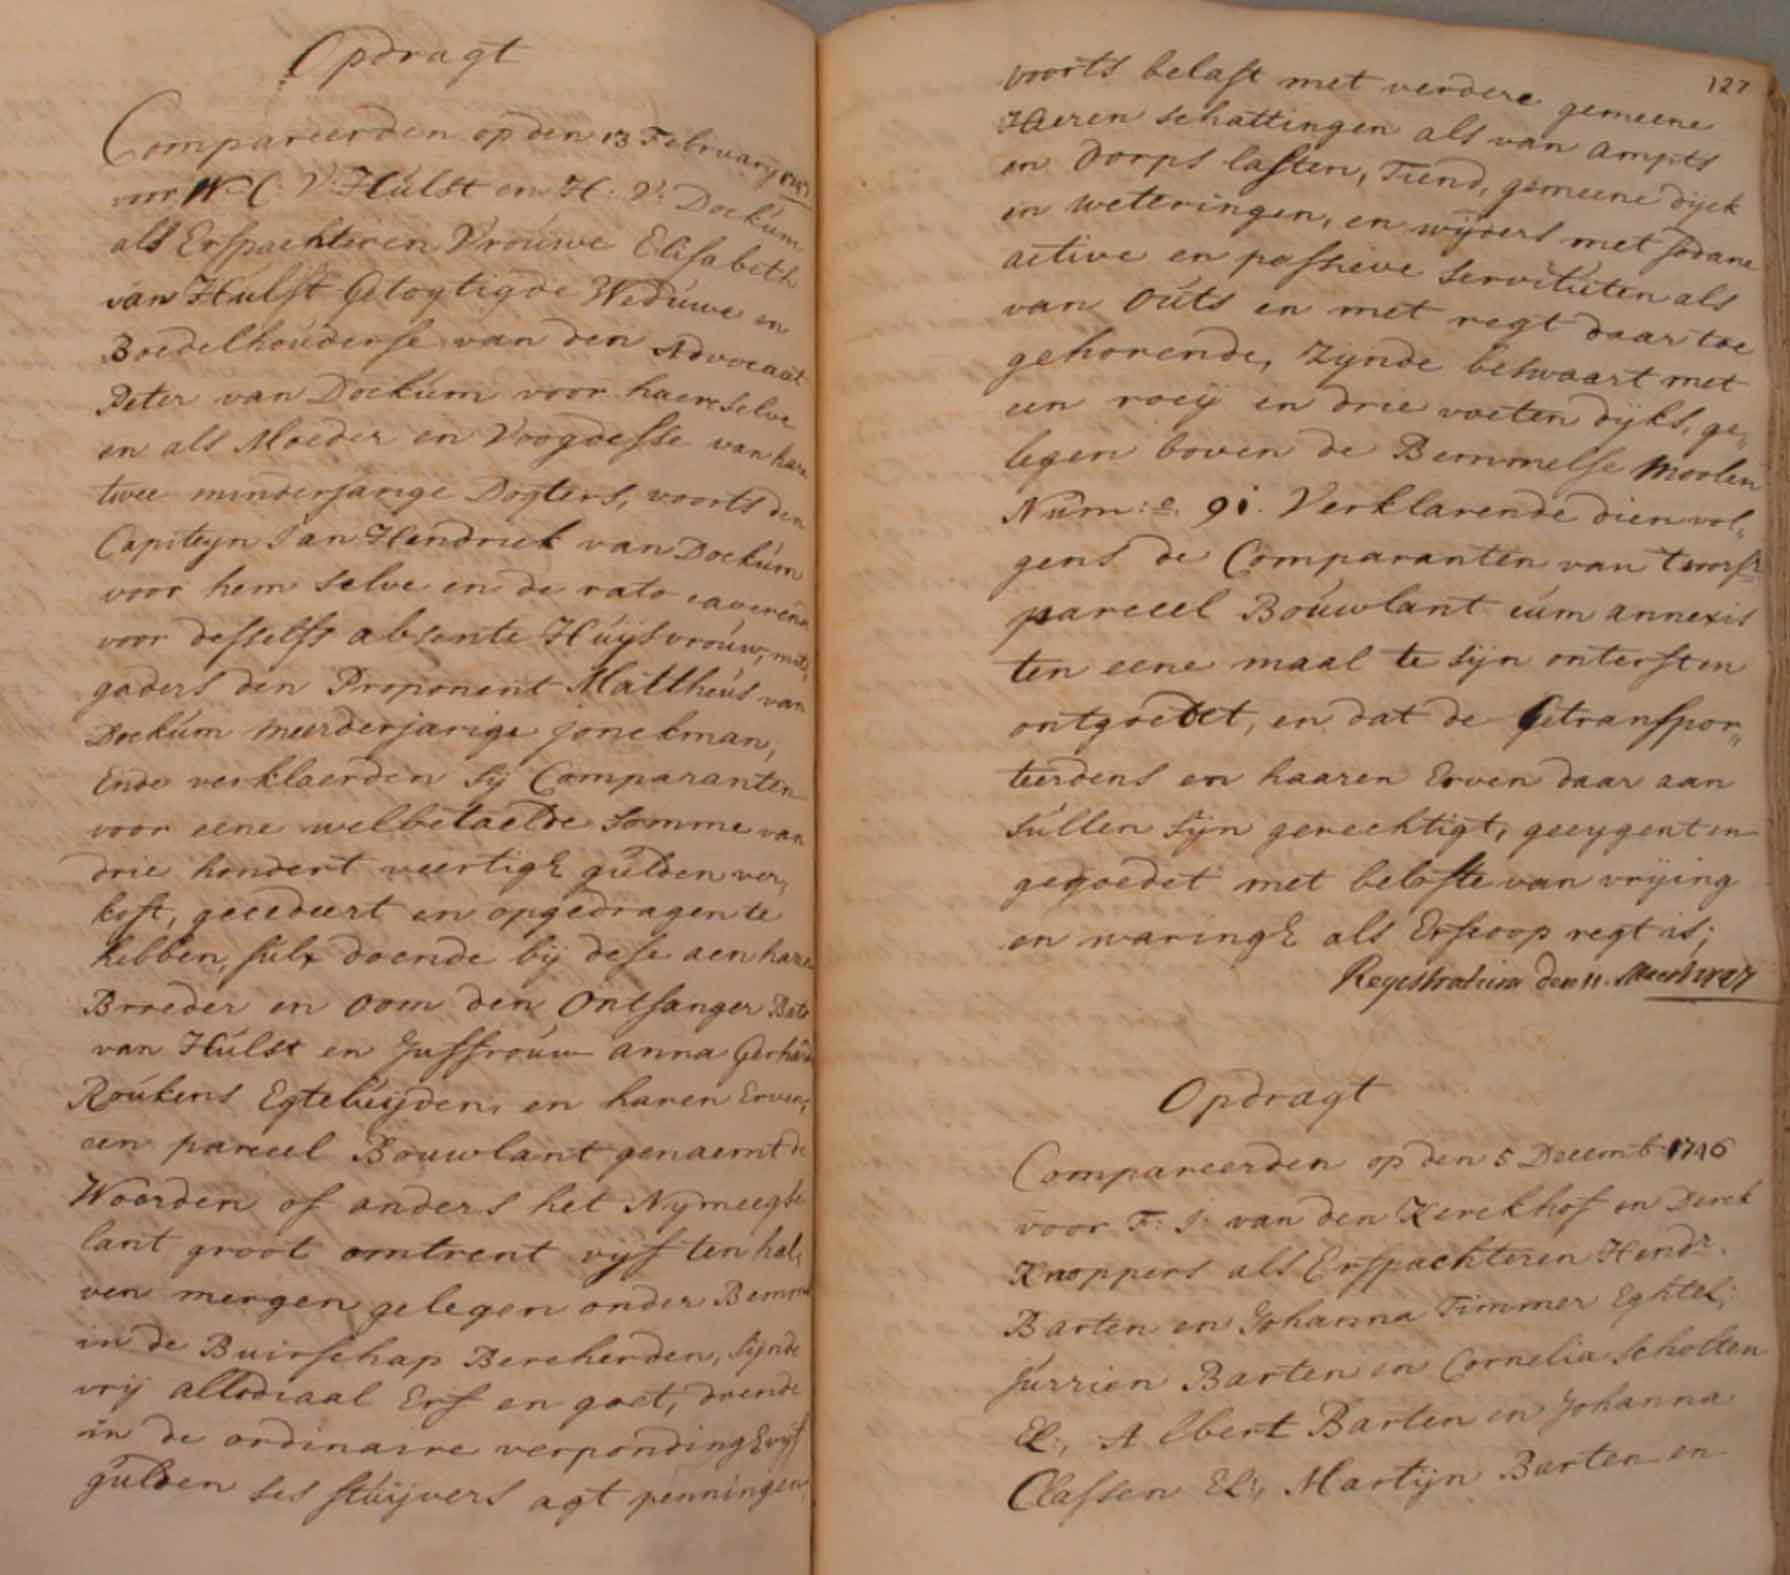 Opdragt
Compareerden op den 13 February 1747
voor W: C: V: Hulst en H: V: Dockum
als Erfpachteren Vrouwe Elisabeth
van Hulst Getogtigde Weduwe en
Boedelhouderse van den Advocaat
Peter van Dockum voor haer selve
en als Moeder en Voogdesse van hare
twee minderjarige Dogters, voorts den
Capiteyn Jan Hendrick van Dockum
voor hem selve en de rato caverende
voor desselfs absente Huysvrouw, mits„
gaders den Proponent Mattheus van
Dockum meerderjarige jonckman,
Ende verklaerden sij Comparanten
voor eene welbetaelde somme van
drie hondert veertigh gulden ver„
koft, gecedeert en opgedragen te
hebben, sulx doende bij dese aen haren
Broeder en Oom den Ontfanger
van Hulst en Juffrouw Anna Gerharda
Roukens Egteluyden, en haren Erven,
een parceel Bouwlant genaemt de
Woorden of anders het Nymeegse
lant groot omtrent vijf ten hal„
ven mergen gelegen onder Bemmel
in de Buirschap Bercherden, sijnde
vrij allodiaal Erf en goet, doende
in de ordinaire verpondingh vijf
gulden ses stuijvers agt penningen,
127
voorts belast met verdere gemeene
Heeren schattingen als van Ampts
en Dorps lasten, Tiend, gemeene dijck
en weteringen, en wijders met sodane
active en passieve servituten als
van Outs en met regt daar toe
gehorende, Zijnde beswaart met
een roeij en drie voeten dijks, ge„
legen boven de Bemmelse Moolen
Num:o 91. Verklarende dienvol„
gens de Comparanten van t voorsz
parceel Bouwlant cum annexis
ten eene maal te sijn onterft en
ontgoedet, en dat de Getranspor„
teerdens en haaren Erven daar aan
sullen sijn gerechtigt, geeygent en
gegoedet met belofte van vrijing
en waringh als Erfcoop regt is;
Registratum den 11. Meert 1747
Opdragt
Compareerden op den 5 Decemb: 1746
voor F: J: van den Kerckhof en Derck
Knoppers als Erfpachteren Hendr.
Barten en Johanna Timmer Eghtel;
Jurrien Barten en Cornelia Scholten
El:, Albert Barten en Johanna
Classen El:, Martijn Barten en